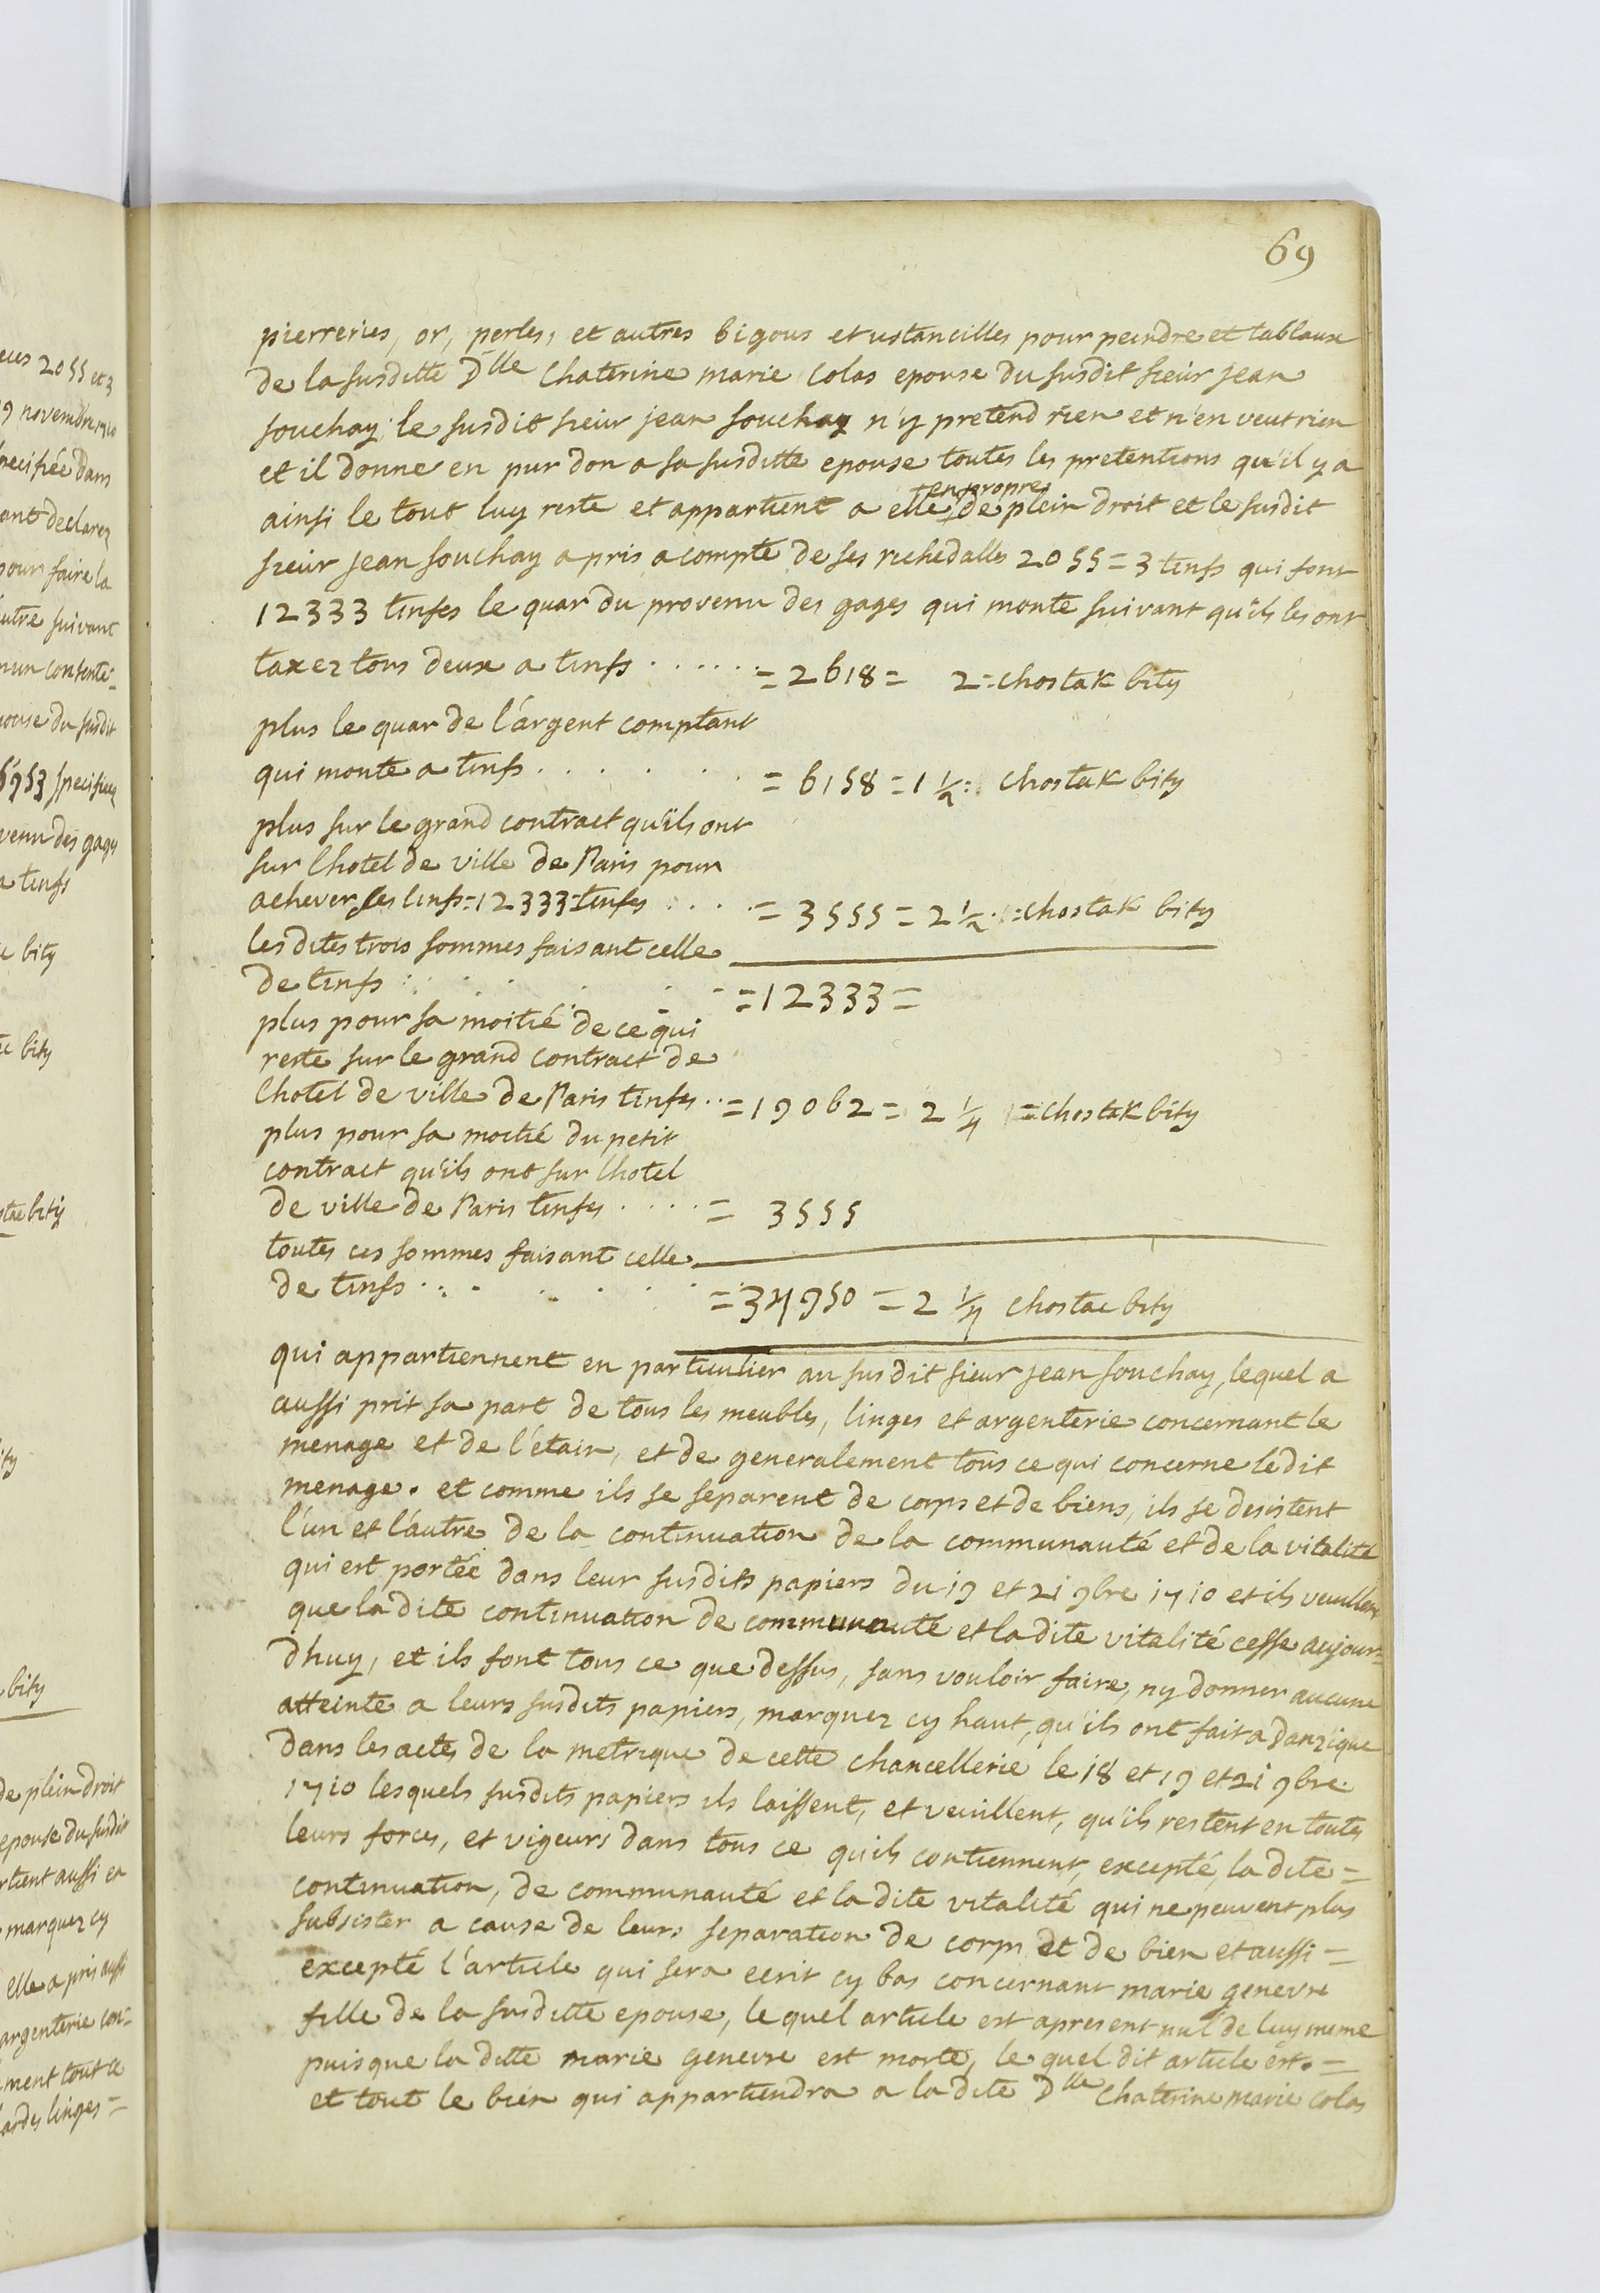 69
pierreries, or, perles, et autres bigous et ustancilles pour peindre et tablaux
de la susditte Dlle Chaterine marie Colas epouse du susdit sieur jean
souchay; le susdit sieur jean souchay n'y pretend rien et n'en veut rien
et il donne en pur don a sa susditte epouse toutes les pretentions qu'il y a
en propre
ainsi le tout luy reste et appartient a elle de plein droit et le susdit
sieur jean souchay a pris a compte de ses richedalles 2055 = 3 tinfs qui font
12333 tinfes le quar du provenu des gages qui monte suivant qu'ils les ont
taxez tous deux a tinfs . . . . . . = 2618 = 2 = chostak bity
plus le quar de l'argent comptant
qui monte a tinfs . . . . . . = 6158 = 1 1/2 = chostak bity
plus sur le grand contract qu'ils ont
sur lhotel de ville de Paris pour
achever les tinfs = 12333 = tinfes . . . . = 3555 = 2 1/2 = chostak bity
les dites trois sommes faisant celle
de tinfs . . . . . . = 12333 =
plus pour sa moitié de ce qui
reste sur le grand contract de
lhotel de ville de Paris tinfes . . = 19062 = 2 1/4 = chostak bity
plus pour sa moitié du petit
contract qu'ils ont sur lhotel
de ville de Paris tinfes . . . . = 3555
toutes ces sommes faisant celle
de tinfs . . . . . . = 34950 = 2 1/4 chostac bity
qui appartiennent en particulier au susdit sieur jean souchay, lequel a
aussi prit sa part de tous les meubles, linges et argenterie concernant le
menage et de l'étain, et de generalement tous ce qui concerne ledit
menage. et comme ils se separent de corps et de biens, ils se desistent
l'un et l'autre de la continuation de la communauté et de la vitalité
qui est portée dans leur susdits papiers du 19 et 21 9bre 1710 et ils veuillent
que la dite continuation de communauté et la dite vitalité cesse aujour=
dhuy, et ils font tous ce que dessus, sans vouloir faire, ny donner aucune
atteinte a leurs susdits papiers, marquez cy haut, qu'ils ont fait a Danzique
dans les actes de la metrique de cette chancellerie le 18 et 19 et 21 9bre
1710 lesquels susdits papiers ils laissent, et veuillent, qu'ils restent en toutes
leurs forces, et vigeurs dans tous ce qu'ils contiennent, excepté, la dite =
continuation, de communauté et la dite vitalité qui ne peuvent plus
subsister a cause de leurs separation de corps et de bien et aussi =
excepté l'article qui sera ecrit cy bas concernant marie genevre
fille de la susditte epouse, lequel article est apresent nul de luy meme
puisque la ditte marie genevre est morte, le quel dit article est. =
et tout le bien qui appartiendra a la dite Dlle Chaterine marie Colas
2055 et 3
9 novembre 1710
dans
ont declarez
pour faire la
autre suivant
contente=
epouse du susdit
specifiez
des gages
a tinfs
bity
bity
bity
bity
de plein droit
epouse du susdit
aussi en
marquez cy
elle a pris aussi
argenterie con=
ment tout ce
linges =